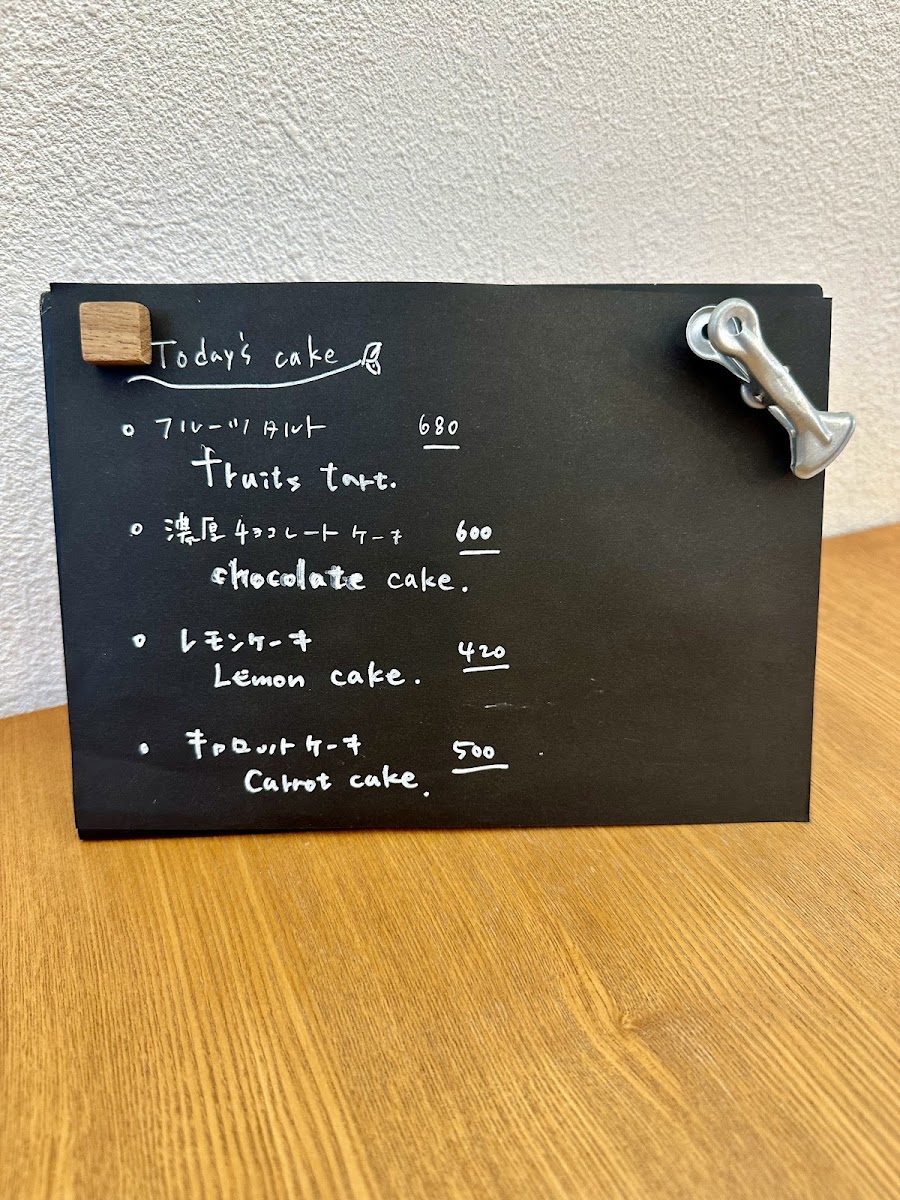 Today's cake
フルーツタルト 680
fruits tart.
濃厚チョコレートケーキ 600
chocolate cake.
レモンケーキ 420
Lemon cake.
キャロットケーキ 500
Carrot cake.